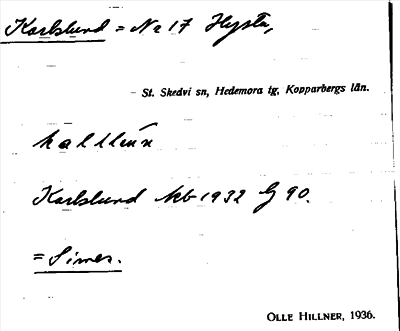 Karlslund = No 17 Hysta,
St. Skedvi sn, Hedemora tg, Kopparbergs län.
Karlslund Mb 1932 G 90.
= Simes.
OLLE HILLNER, 1936.